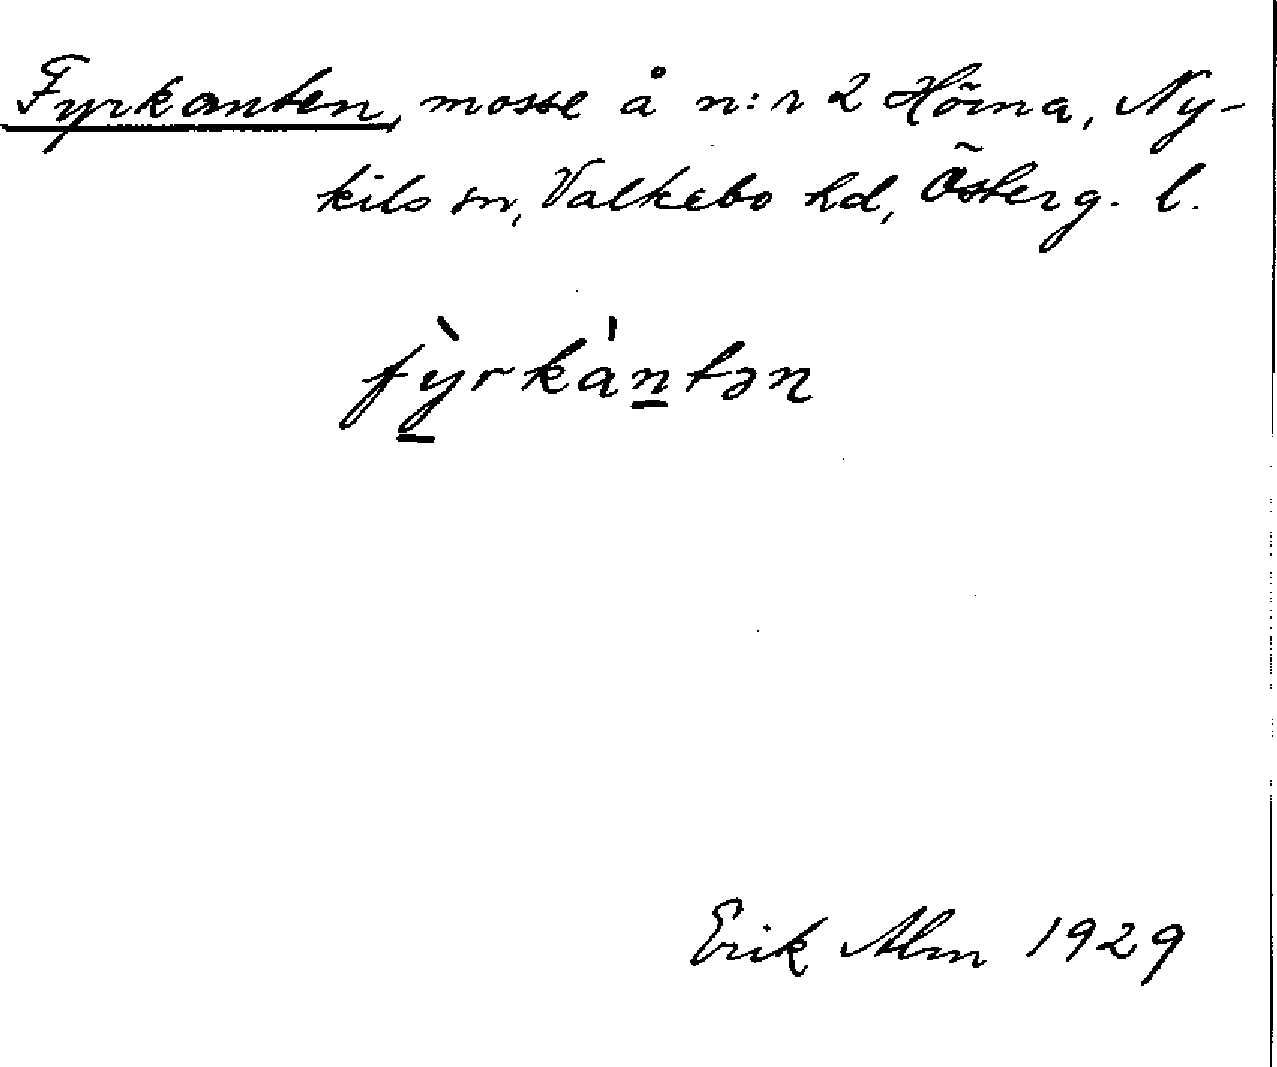 Fyrkanten, mosse å n:r 2 Hörna, Ny-
kils sn, Valkebo hd, Österg. l.
fỳ̲rka̍n̲tən
Erik Alm 1929